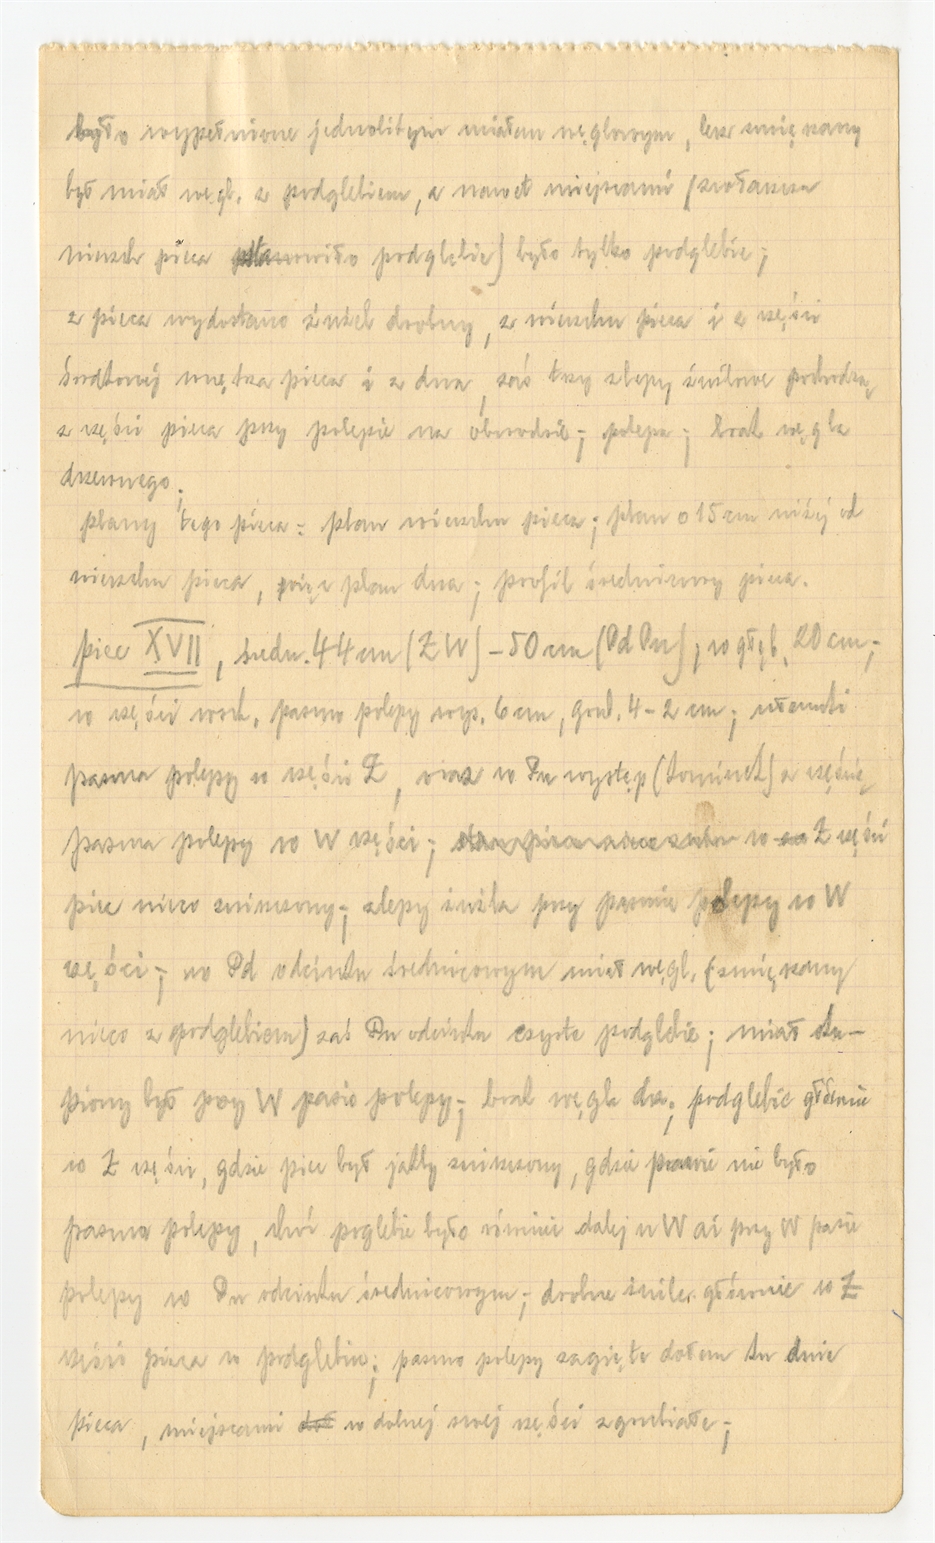 było wypełnione jednolitym miałem węglowym, lecz zmięszany
był miał węgl. z podglebiem, a nawet miejscami (zwłaszcza
wierzch pieca podglebie) było tylko podglebie;
z pieca wydostano żużel drobny, z wierzchu pieca i z części
środkowej wnętrza pieca i z dna, zaś trzy zlepy żużlowe pochodzą
z części pieca przy polepie na obwodzie; polepa; brak węgla
drzewnego;
plany tego pieca: plan wierzchu pieca; plan o 15 cm niżej od
wierzchu pieca, plan dna; profil średnicowy pieca.
piec XVII, średn. 44 cm (Z W) – 50 cm (Pd Pn), w głęb. 20 cm;
w części wsch. pasmo polepy wys. 6 cm, grub. 4–2 cm; ułamki
pasma polepy w części Z, oraz w Pn występ (kominek) z części
pasma polepy w W części; w Z części
piec nieco zniszczony; zlepy żużla przy paśmie polepy w W
części; w Pd odcinku średnicowym miał węgl. (zmięszany
nieco z podglebiem) zaś Pn odcinku czyste podglebie; miał sku-
piony był przy W pasie polepy; brak węgla drz; podglebie głównie
w Z części, gdzie piec był jakby zniszczony, gdzie prawie nie było
pasma polepy, choć poglebie było również dalej w W aż przy W pasie
polepy w Pn odcinku średnicowym; drobne żużle głównie w Z
części pieca w podglebiu; pasmo polepy zagięte dołem ku dnie
pieca, miejscami w dolnej swej części zgrubiałe;